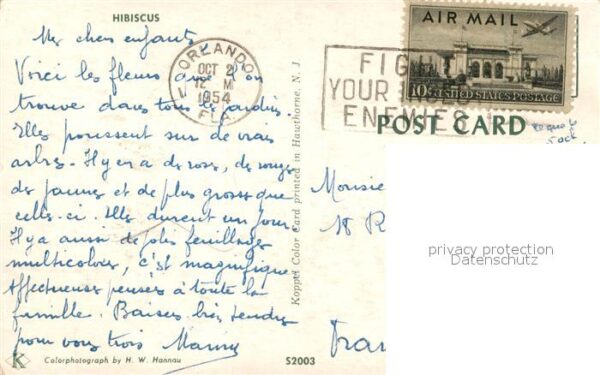 HIBISCUS
Mes chers enfants
Voici les fleurs que l'on
trouve dans tous les jardins.
Elles poussent sur de vrais
arbres. Il y en a de roses, de rouges
de jaunes et de plus grosses que
celles-ci. Elles durent un jour.
Il y a aussi de jolis feuillages
multicolores, c'est magnifique
Affectueuses pensées à toute la
famille. Baisers bien tendres
pour vous trois
K
Colorphotograph by H. W. Hannau
S2003
Koppel Color Card printed in Hawthorne, N. J.
ORLANDO
OCT 2
12 M
1954
FLA.
FIG
YOUR
ENEMIES
AIR MAIL
10¢ UNITED STATES POSTAGE
POST CARD
5 oct
Monsie
18 R
Fran
privacy protection
Datenschutz